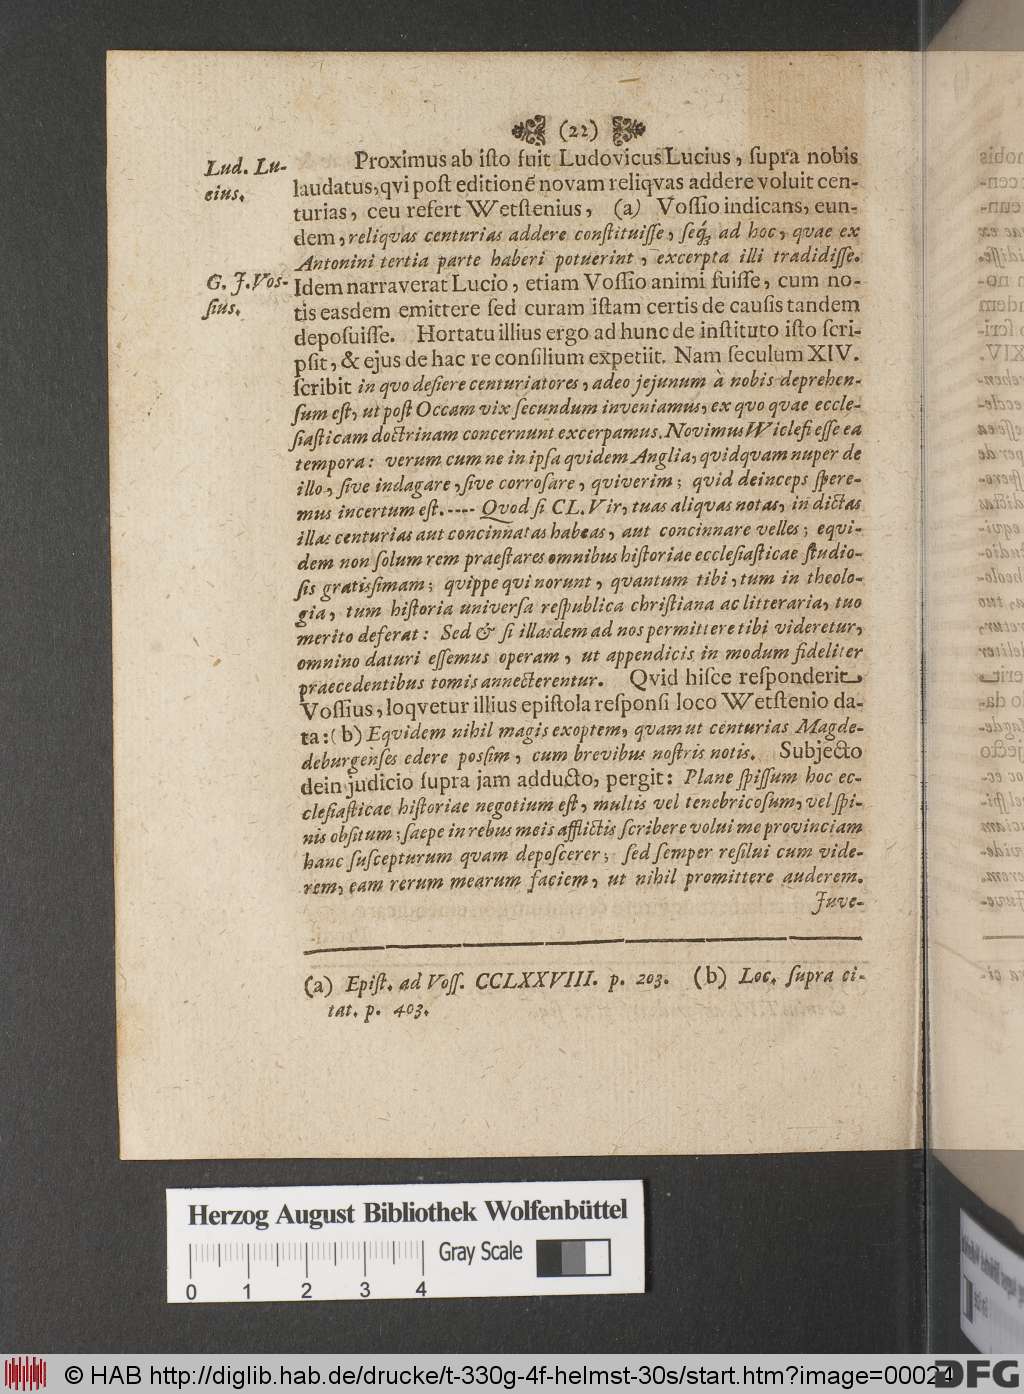 (22)
Lud. Lu-
cius.
Proximus ab iſto fuit Ludovicus Lucius, ſupra nobis
laudatus, qvi poſt editionē novam reliqvas addere voluit cen-
turias, ceu refert Wetſtenius, (a) Voſſio indicans, eun-
dem, reliqvas centurias addere conſtituiſſe, ſeq́ꝫ ad hoc, quae ex
Antonini tertia parte haberi potuerint, excerpta illi tradidiſſe.
G. J. Voſ-
ſius.
Idem narraverat Lucio, etiam Voſſio animi fuiſſe, cum no-
tis easdem emittere ſed curam iſtam certis de cauſis tandem
depoſuiſſe. Hortatu illius ergo ad hunc de inſtituto iſto ſcri-
pſit, & ejus de hac re conſilium expetiit. Nam ſeculum XIV.
ſcribit in quo deſiere centuriatores, adeo jejunum à nobis deprehen-
ſum eſt, ut poſt Occam vix ſecundum inveniamus, ex quo quae eccle-
ſiaſticam doctrinam concernunt excerpamus. Novimus Wiclefi eſſe ea
tempora: verum cum ne in ipſa quidem Anglia, quidqvam nuper de
illo, ſive indagare, ſive corroſare, quiverim; quid deinceps ſpere-
mus incertum eſt.---- Quod ſi CL. Vir, tuas aliqvas notas, in dictas
illas centurias aut concinnatas habeas, aut concinnare velles; equi-
dem non ſolum rem praeſtares omnibus hiſtoriae eccleſiaſticae ſtudio-
ſis gratiſſimam; quippe qui norunt, quantum tibi, tum in theolo-
gia, tum hiſtoria univerſa reſpublica chriſtiana ac litteraria, tuo
merito deferat: Sed & ſi illasdem ad nos permittere tibi videretur,
omnino daturi eſſemus operam, ut appendicis in modum fideliter
praecedentibus tomis annecterentur. Qvid hiſce reſponderit
Voſſius, loqvetur illius epiſtola reſponſi loco Wetſtenio da-
ta: (b) Eqvidem nihil magis exoptem, quam ut centurias Magde-
deburgenſes edere poſſim, cum brevibus noſtris notis. Subjecto
dein judicio ſupra jam adducto, pergit: Plane ſpiſſum hoc ec-
cleſiaſticae hiſtoriae negotium eſt, multis vel tenebricoſum, vel ſpi-
nis obſitum; ſaepe in rebus meis afflictis ſcribere volui me provinciam
hanc ſuſcepturum quam depoſcerer; ſed ſemper reſilui cum vide-
rem, eam rerum mearum faciem, ut nihil promittere auderem.
Juve-
(a) Epiſt. ad Voſſ. CCLXXVIII. p. 203. (b) Loc. ſupra ci-
tat. p. 403.
Herzog August Bibliothek Wolfenbüttel
Gray Scale
0 1 2 3 4
© HAB http://diglib.hab.de/drucke/t-330g-4f-helmst-30s/start.htm?image=00024
DFG